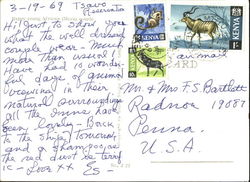 3-19-69 Tsavo
Just to show you
what the well dressed
couple wear - much
more than usual!
Have had a wonder-
ful days of animal
browsing in their
natural surroundings
all the Inns have
been lovely - Back
to the Ship tomorrow
and a shampoo as
the red dust be terrif
ic - Love xx
KENYA
KENYA
KENYA
air mail
CARD
Mr. & Mrs F. S. Bartlett
Radnor 19087
Penna.
U.S.A.